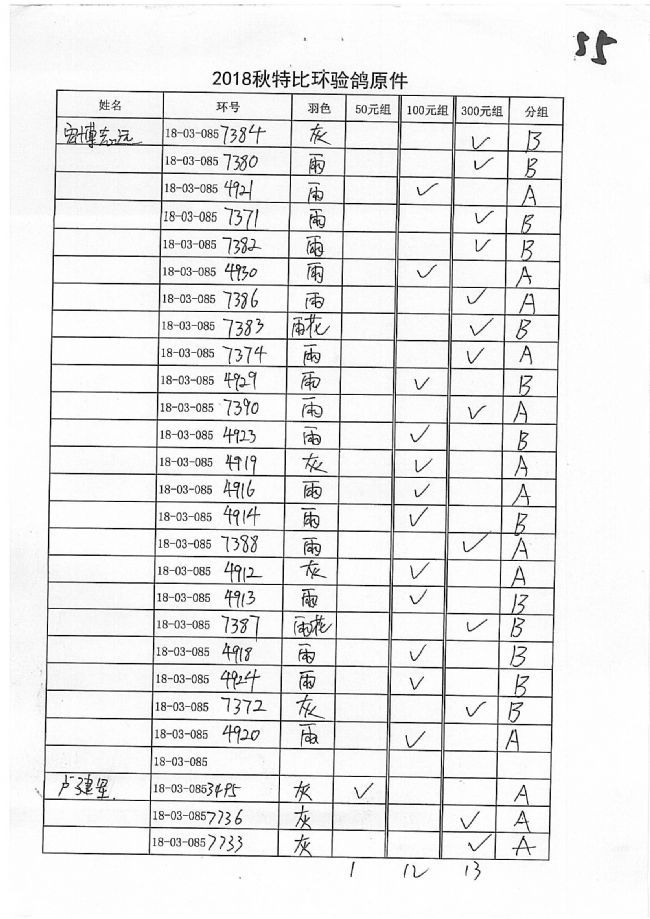 55
2018秋特比环验鸽原件
姓名 环号 羽色 50元组 100元组 300元组 分组
宏博志远 18-03-085 7384 灰 ✓ B
18-03-085 7380 雨 ✓ B
18-03-085 4921 雨 ✓ A
18-03-085 7371 雨 ✓ B
18-03-085 7382 雨 ✓ B
18-03-085 4930 雨 ✓ A
18-03-085 7386 雨 ✓ A
18-03-085 7383 雨花 ✓ B
18-03-085 7374 雨 ✓ A
18-03-085 4929 雨 ✓ B
18-03-085 7390 雨 ✓ A
18-03-085 4923 雨 ✓ B
18-03-085 4919 灰 ✓ A
18-03-085 4916 雨 ✓ A
18-03-085 4914 雨 ✓ B
18-03-085 7388 雨 ✓ A
18-03-085 4912 灰 ✓ A
18-03-085 4913 雨 ✓ B
18-03-085 7387 雨花 ✓ B
18-03-085 4918 雨 ✓ B
18-03-085 4924 雨 ✓ B
18-03-085 7372 灰 ✓ B
18-03-085 4920 雨 ✓ A
18-03-085
18-03-085 3495 灰 ✓ A
18-03-085 7736 灰 ✓ A
18-03-085 7733 灰 ✓ A
1 12 13